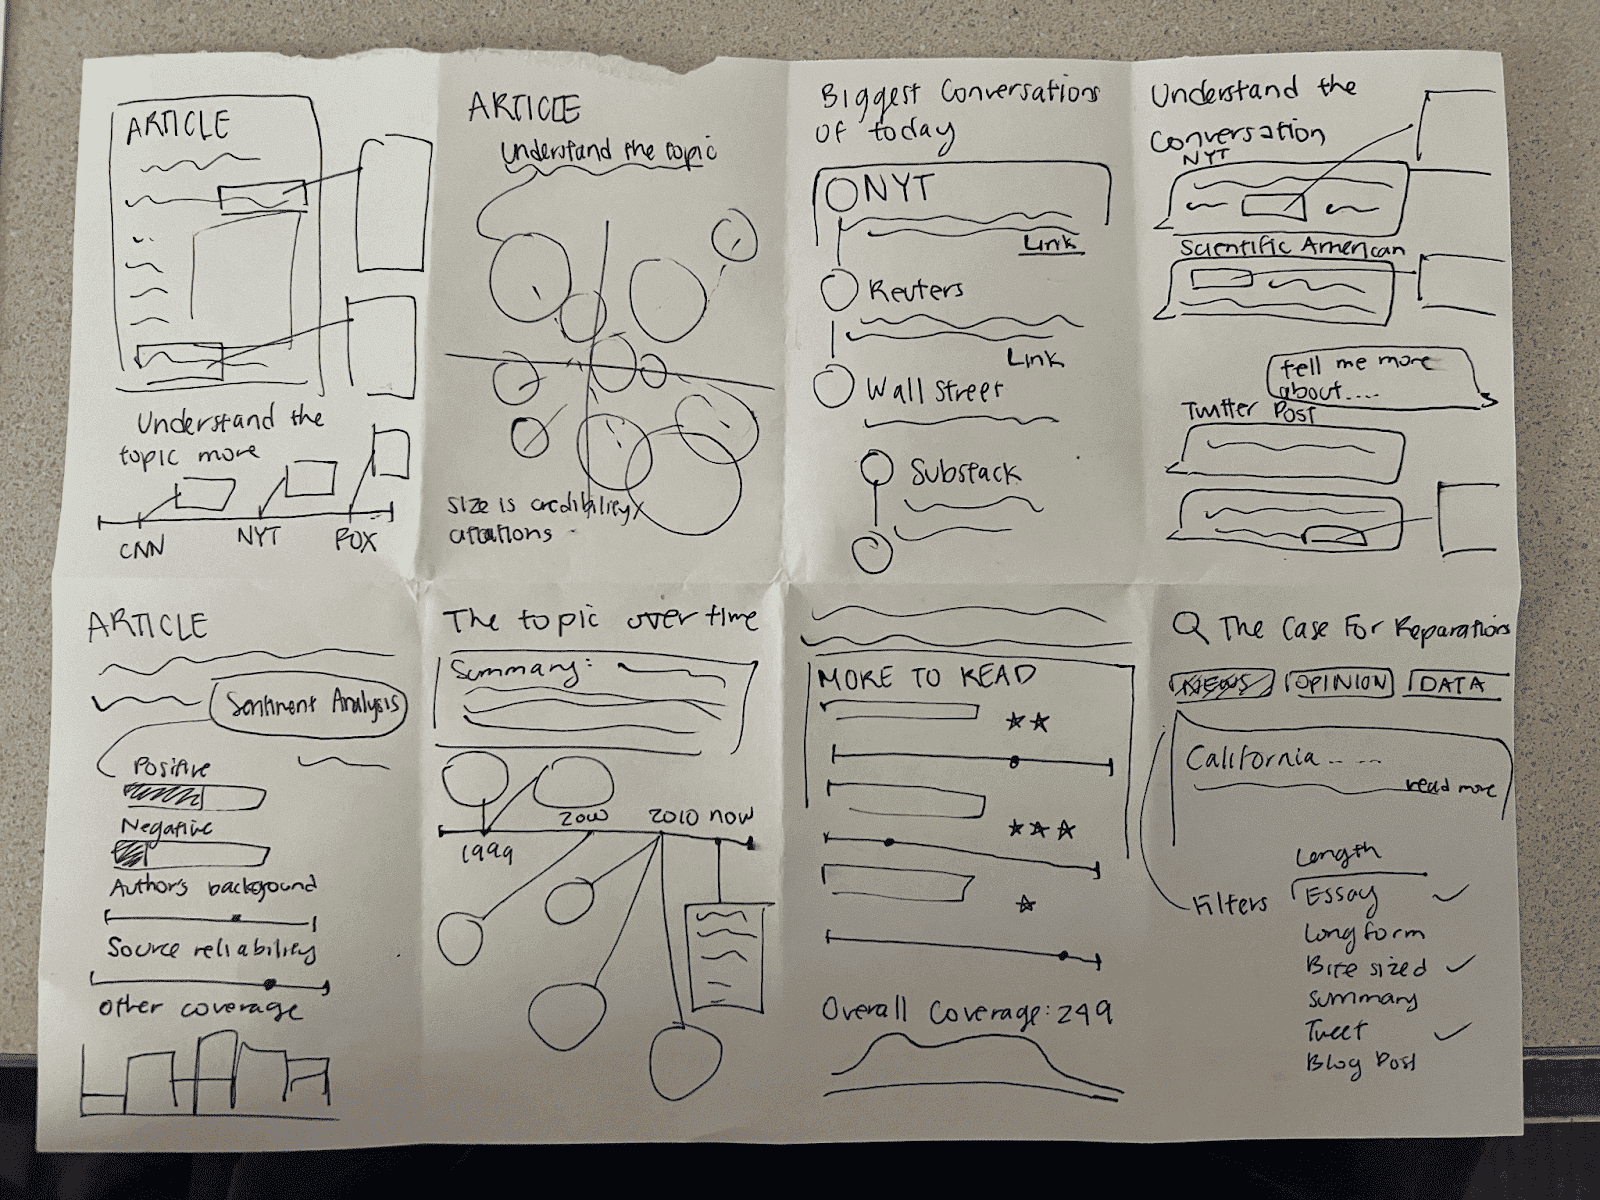 ARTICLE
Understand the
topic more
CNN
NYT
FOX
ARTICLE
Understand the topic
size is credibility/
citations
Biggest Conversations
of today
NYT
Link
Reuters
Link
Wall Street
Substack
Understand the
Conversation
NYT
Scientific American
tell me more
about....
Twitter Post
ARTICLE
Sentiment Analysis
Positive
Negative
Author's background
Source reliability
Other coverage
The topic over time
Summary:
1999
2000
2010
now
MORE TO READ
Overall Coverage: 249
The Case For Reparations
NEWS
OPINION
DATA
California -- --
read more
Filters
Length
Essay
Longform
Bite sized
Summary
Tweet
Blog Post